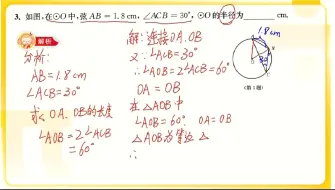 3. 如图,在⊙O中,弦AB=1.8 cm,∠ACB=30°,⊙O的半径为 cm.
解析
分析:
AB=1.8cm
∠ACB=30°
求 OA、OB的长度
∠AOB=2∠ACB
=60°
解:连接OA、OB
又∵∠ACB=30°
∴∠AOB=2∠ACB=60°
OA=OB
在△AOB中
∠AOB=60° OA=OB
△AOB为等边△
∴
1.8cm
30°
(第3题)